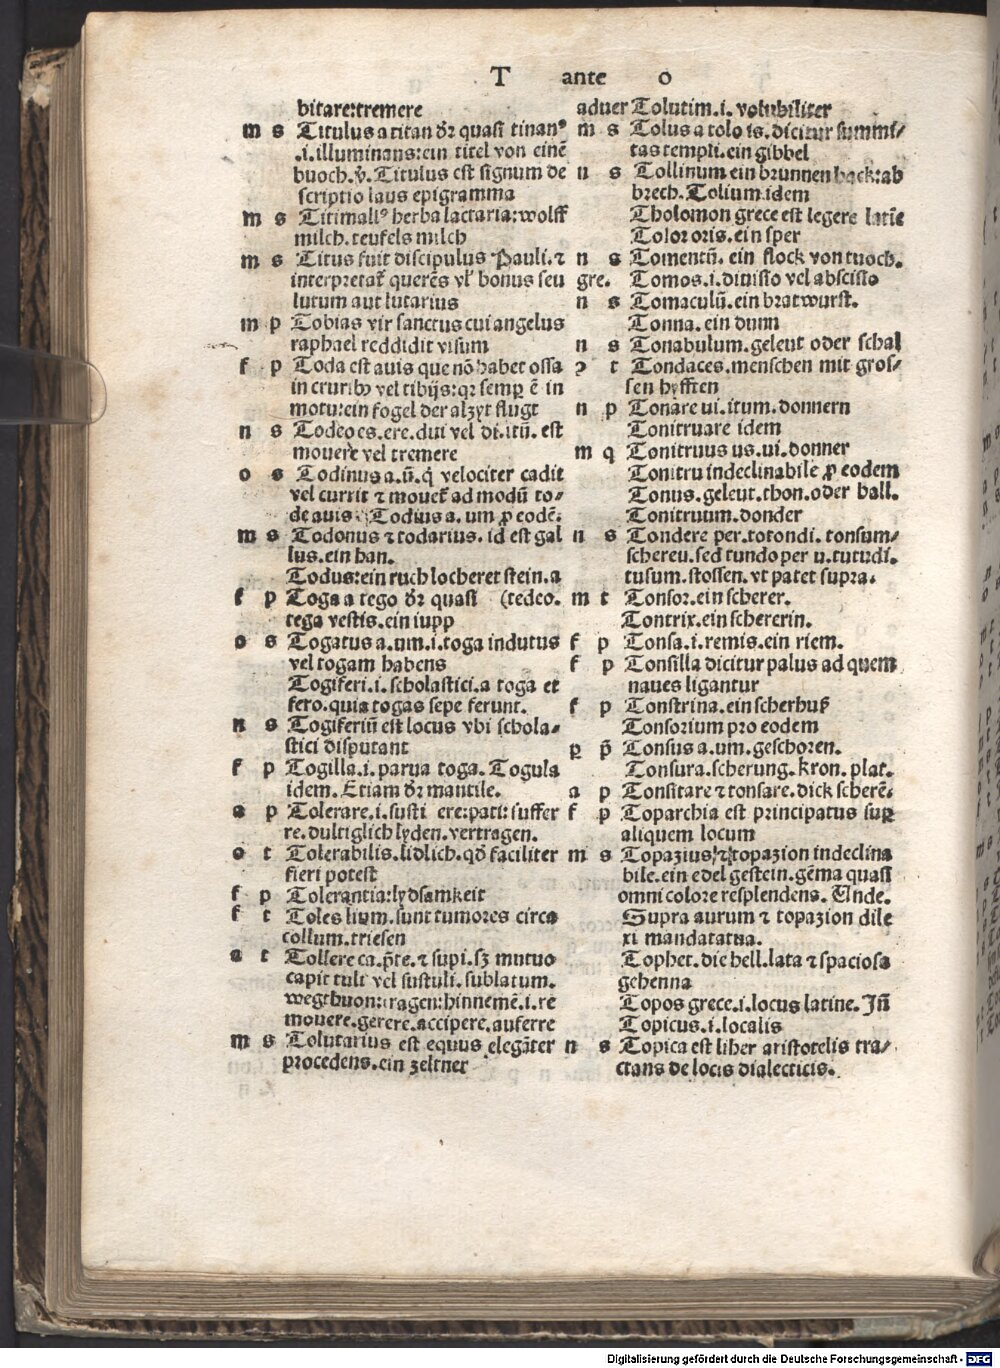 T ante o
bitare:tremere
m s Titulus a titan dr̃ quasi tinanꝰ
.i.illuminans:ein titel von einẽ
buoch.ṽ.Titulus est signum de
scriptio laus epigramma
m s Titimallꝰ herba lactaria:wolff
milch.teufels milch
m s Titus fuit discipulus Pauli.⁊
interpretat̃ querẽs vl̃ bonus seu
lutum aut lutarius
m p Tobias vir sanctus cui angelus
raphael reddidit visum
f p Toda est auis que nõ habet ossa
in cruribꝰ vel tibijs:qꝛ semꝑ ẽ in
motu:ein fogel der alzyt flugt
n s Todeo es.ere.dui vel di.itũ. est
mouere vel tremere
o s Todinus a.ũ.q̇ velociter cadit
vel currit ⁊ mouet̃ ad modũ to⸗
de auis. Todius a. um ꝓ eodẽ.
m s Todonus ⁊ todarius. id est gal
lus.ein han.
Todus:ein ruch locheret stein.a
f p Toga a tego dr̃ quasi (tedeo.
tega vestis.ein iupp
o s Togatus a.um.i.toga indutus
vel togam habens
Togiferi.i.scholastici.a toga et
fero.quia togas sepe ferunt.
n s Togiferiũ est locus vbi schola⸗
stici disputant
f p Togilla.i.parua toga.Togula
idem. Etiam dr̃ mantile.
a p Tolerare.i.susti ere:pati:suffer
re.dultiglich lyden.vertragen.
o t Tolerabilis.lidlich.qd̃ faciliter
fieri potest
f p Tolerantia:lydsamkeit
f t Toles lium.sunt tumores circa
collum.triesen
a t Tollere ca.p̃te.⁊ supi.sꝫ mutuo
capit tuli vel sustuli.sublatum.
wegthuon:tragen:hinnemẽ.i.re
mouere.gerere.accipere.auferre
m s Tolutarius est equus elegãter
procedens.ein zeltner
aduer Tolutim.i. volubiliter
m s Tolus a tolo is.dicitur summi⸗
tas templi.ein gibbel
n s Tollinum ein brunnen hack:ab
brech.Tolium.idem
Tholomon grece est legere latĩe
Tolor oris.ein sper
n s Tomentũ. ein flock von tuoch.
gre. Tomos.i.diuisio vel abscissio
n s Tomaculũ.ein bratwurst.
Tonna.ein dunn
n s Tonabulum.geleut oder schal
ꝯ t Tondaces.menschen mit gros⸗
sen hyfften
n p Tonare ui.itum.donnern
Tonitruare idem
m q Tonitruus us.ui.donner
Tonitru indeclinabile ꝓ eodem
Tonus.geleut.thon.oder hall.
Tonitruum.donder
n s Tondere per.totondi. tonsum⸗
scheren.sed tundo per u.tutudi.
tusum.stossen.vt patet supra.
m t Tonsor.ein scherer.
Tontrix.ein schererin.
f p Tonsa.i.remis.ein riem.
f p Tonsilla dicitur palus ad quem
naues ligantur
f p Tonstrina.ein scherhuß
Tonsorium pro eodem
ꝑ p̃ Tonsus a.um.geschoren.
Tonsura.scherung.kron.plat.
a p Tonsitare ⁊ tonsare.dick scherẽ.
f p Toparchia est principatus suꝑ
aliquem locum
m s Topazius ⁊ topazion indeclina
bile.ein edel gestein.gẽma quasi
omni colore resplendens. Unde.
Supra aurum ⁊ topazion dile
xi mandata tua.
Tophet.die hell.lata ⁊ spaciosa
gehenna
Topos grece.i.locus latine. Iñ
Topicus.i.localis
n s Topica est liber aristotelis tra⸗
ctans de locis dialecticis.
Digitalisierung gefördert durch die Deutsche Forschungsgemeinschaft - DFG